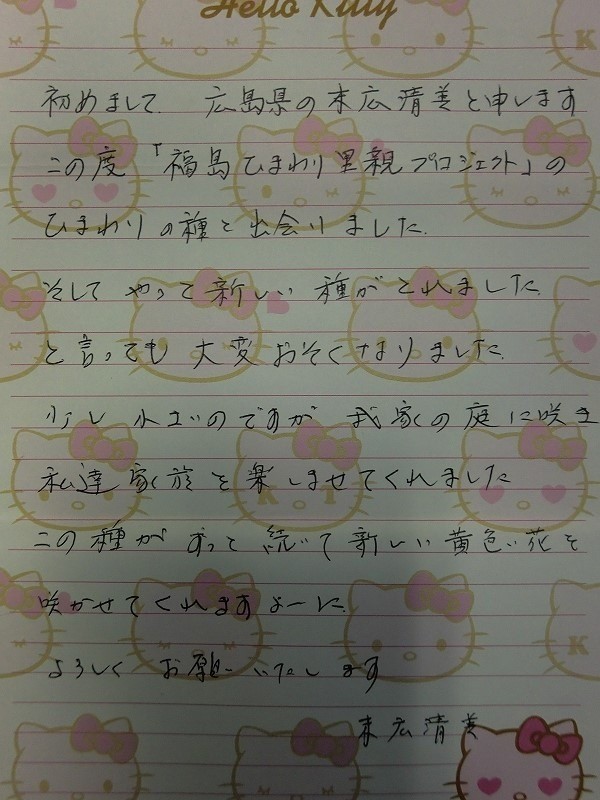 Hello Kitty
初めまして、 広島県の末広清美と申します
この度「福島ひまわり里親プロジェクト」の
ひまわりの種と出会いました。
そして やっと新しい 種がとれました。
と言っても 大変おそくなりました。
少し 小さいのですが 我家の庭に咲き
私達家族を楽しませてくれました
この種が ずっと続いて新しい黄色い花を
咲かせてくれますように。
よろしく お願い いたします
末広清美